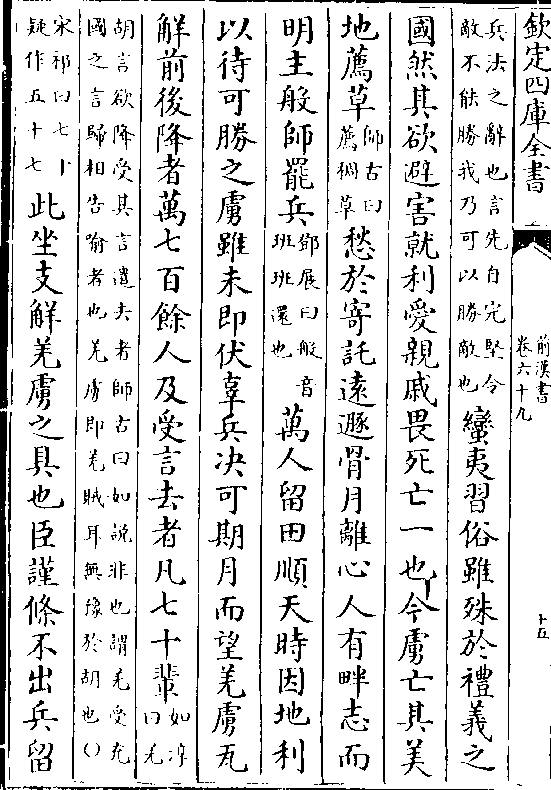 欽定四庫全書
前漢書
卷六十九
十五
兵法之辭也言先自完堅令
敵不能勝我乃可以勝敵也
蠻夷習俗雖殊於禮義之
國然其欲避害就利愛親戚畏死亡一也今虜亡其美
地薦草
師古曰
薦稠草
愁於寄託遠遯骨月離心人有畔志而
明主般師罷兵
鄧展曰般音
班班還也
萬人留田順天時因地利
以待可勝之虜雖未即伏辜兵决可期月而望羌虜瓦
解前後降者萬七百餘人及受言去者凡七十輩
如淳
曰羌
胡言欲降受其言遣去者師古曰如說非也謂羌受充
國之言歸相告喻者也羌虜即羌賊耳無豫於胡也〇
宋祁曰七十
疑作五十七
此坐支解羌虜之具也臣謹條不出兵留